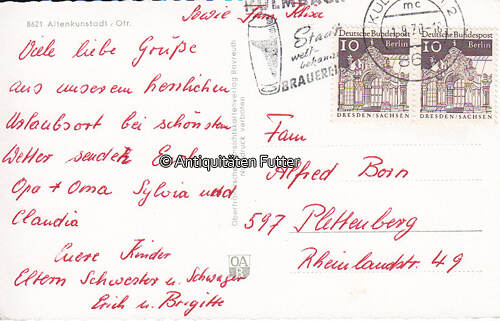 8621 Altenkunstadt/Ofr.
Sowie Fam
Viele liebe Grüße
aus unserem herrlichen
Urlaubsort bei schönsten
Wetter sendet Euch
Opa + Oma Sylvia und
Claudia
Euere Kinder
Eltern Schwester u. Schwager
Erich u. Brigitte
Oberfränkischer Ansichtskartenverlag Bayreuth
Nachdruck verboten
OA
B
KULMBACH
Stadt
weltbekannter
BRAUEREIEN
KULMBACH 2
mc
86
10 Deutsche Bundespost
Berlin
DRESDEN/SACHSEN
10 Deutsche Bundespost
Berlin
DRESDEN/SACHSEN
© Antiquitäten Futter
Fam
Alfred Born
597 Plettenberg
Rheinlandstr. 49